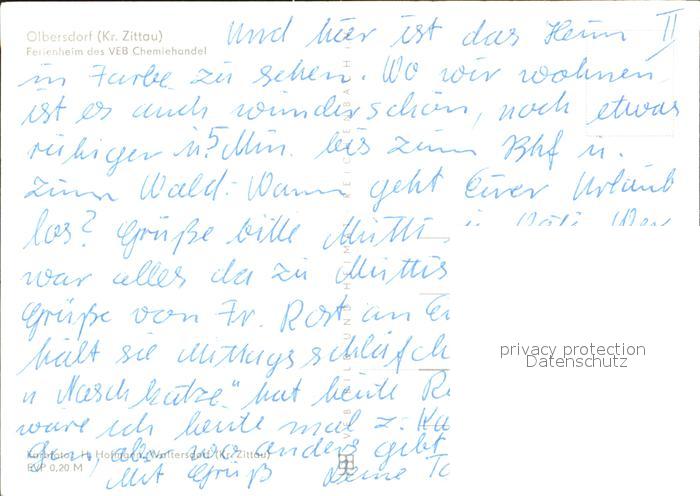 Olbersdorf (Kr. Zittau)
Ferienheim des VEB Chemiehandel
II
Und hier ist das Heim
in Farbe zu sehen. Wo wir wohnen
ist es auch wunderschön, noch etwas
ruhiger u. 5 Min. bis zum Bhf u.
zum Wald. Wann geht Eurer Urlaub
los? Grüße bitte Mutti u. Vati. Wer
war alles da zu Muttis
Grüße von Fr. Rost an
hält sie Mittagsschläfch
u Naschkatze" hat heute
wäre ich heute mal z.
gern, als wo anders geht
Mit Gruß Deine
Farbfoto: H. Hofmann, Waltersdorf (Kr. Zittau)
EVP 0,20 M
privacy protection
Datenschutz